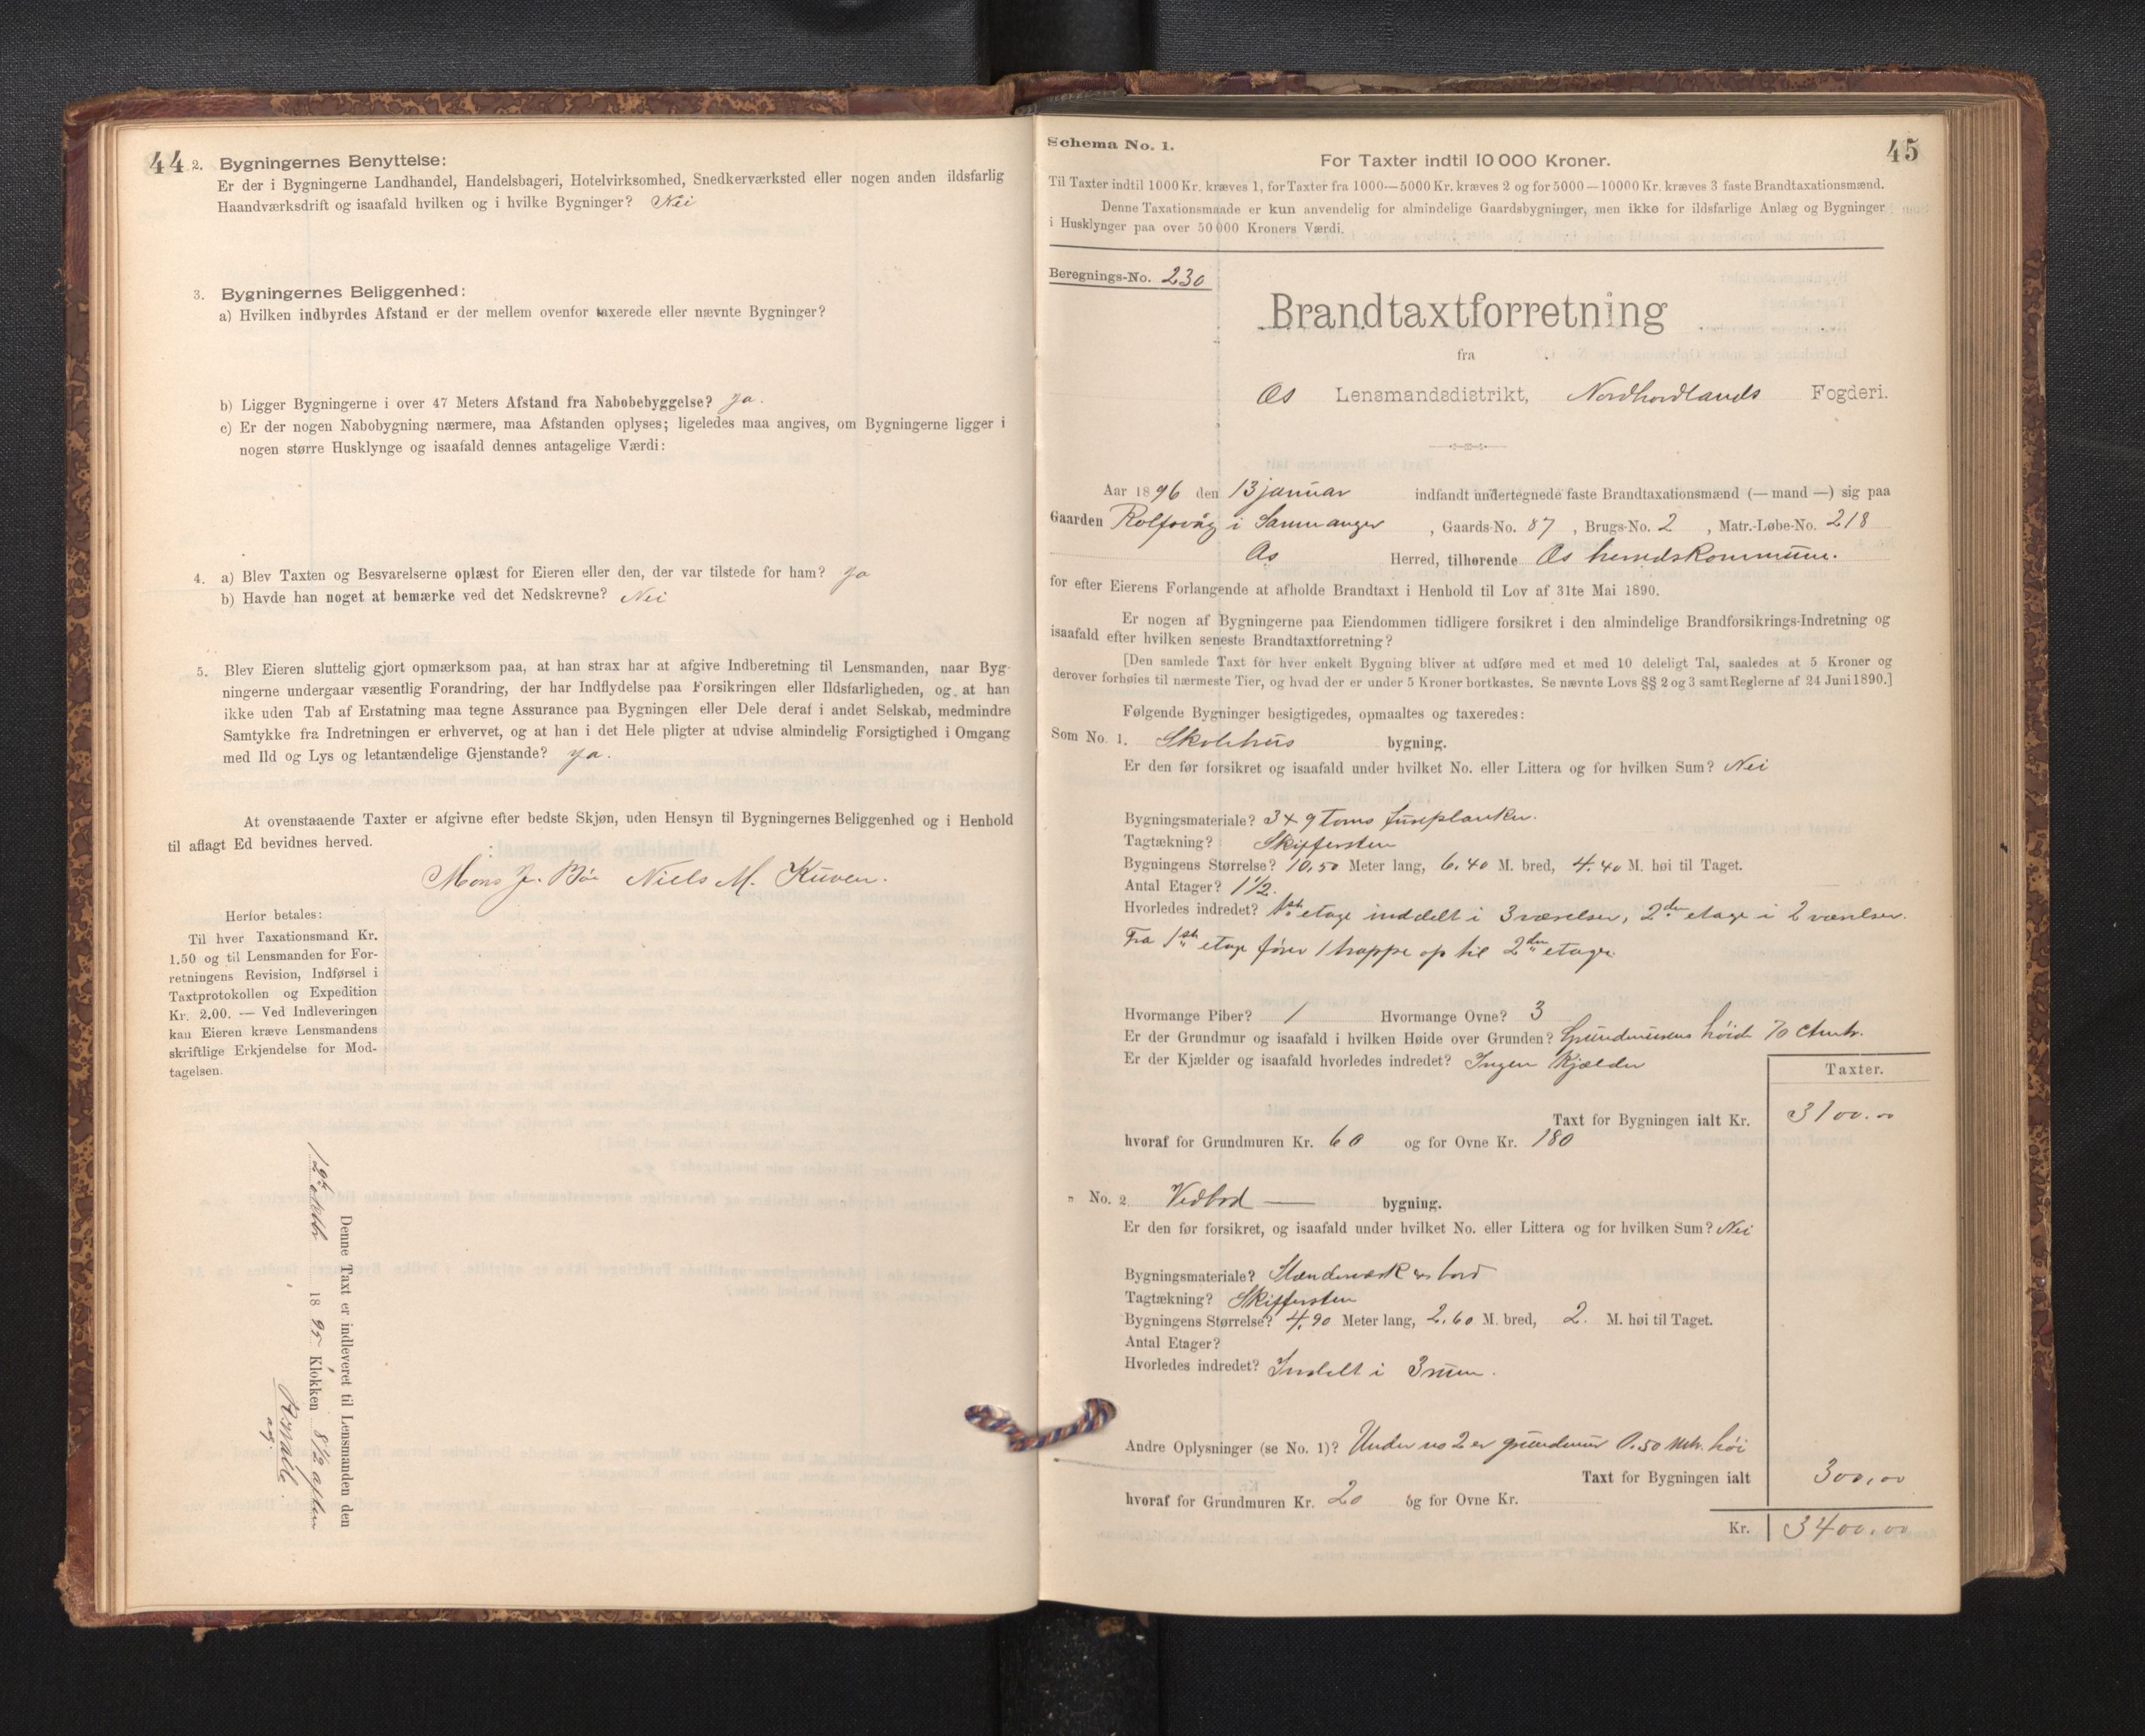 44
2. Bygningernes Benyttelse:
Er der i Bygningerne Landhandel, Handelsbageri, Hotelvirksomhed, Snedkerværksted eller nogen anden ildsfarlig
Haandværksdrift og isaafald hvilken og i hvilke Bygninger? Nei
3. Bygningernes Beliggenhed:
a) Hvilken indbyrdes Afstand er der mellem ovenfor taxerede eller nævnte Bygninger?
b) Ligger Bygningerne i over 47 Meters Afstand fra Nabobebyggelse? ja.
c) Er der nogen Nabobygning nærmere, maa Afstanden oplyses; ligeledes maa angives, om Bygningerne ligger i
nogen større Husklynge og isaafald dennes antagelige Værdi:
4. a) Blev Taxten og Besvarelserne oplæst for Eieren eller den, der var tilstede for ham? ja
b) Havde han noget at bemærke ved det Nedskrevne? Nei
5. Blev Eieren sluttelig gjort opmærksom paa, at han strax har at afgive Indberetning til Lensmanden, naar Byg-
ningerne undergaar væsentlig Forandring, der har Indflydelse paa Forsikringen eller Ildsfarligheden, og at han
ikke uden Tab af Erstatning maa tegne Assurance paa Bygningen eller Dele deraf i andet Selskab, medmindre
Samtykke fra Indretningen er erhvervet, og at han i det Hele pligter at udvise almindelig Forsigtighed i Omgang
med Ild og Lys og letantændelige Gjenstande? ja.
At ovenstaaende Taxter er afgivne efter bedste Skjøn, uden Hensyn til Bygningernes Beliggenhed og i Henhold
til aflagt Ed bevidnes herved.
Mons J. Bøe Niels M. Kuven.
Herfor betales:
Til hver Taxationsmand Kr.
1.50 og til Lensmanden for For-
retningens Revision, Indførsel i
Taxtprotokollen og Expedition
Kr. 2.00. — Ved Indleveringen
kan Eieren kræve Lensmandens
skriftlige Erkjendelse for Mod-
tagelsen.
Denne Taxt er indleveret til Lensmanden den
1895 Klokken 8 1/2 aften
45
Schema No. 1.
For Taxter indtil 10 000 Kroner.
Til Taxter indtil 1000 Kr. kræves 1, for Taxter fra 1000—5000 Kr. kræves 2 og for 5000—10000 Kr. kræves 3 faste Brandtaxationsmænd.
Denne Taxationsmaade er kun anvendelig for almindelige Gaardsbygninger, men ikke for ildsfarlige Anlæg og Bygninger
i Husklynger paa over 50 000 Kroners Værdi.
Beregnings-No. 230
Brandtaxtforretning
fra
Os Lensmandsdistrikt, Nordhordlands Fogderi.
Aar 1896 den 13 januar indfandt undertegnede faste Brandtaxationsmænd (— mand —) sig paa
Gaarden Rolfsvåg i Sammanger, Gaards-No. 87, Brugs-No. 2, Matr.-Løbe-No. 218
Os Herred, tilhørende Os herredskommune.
for efter Eierens Forlangende at afholde Brandtaxt i Henhold til Lov af 31te Mai 1890.
Er nogen af Bygningerne paa Eiendommen tidligere forsikret i den almindelige Brandforsikrings-Indretning og
isaafald efter hvilken seneste Brandtaxtforretning?
[Den samlede Taxt for hver enkelt Bygning bliver at udføre med et med 10 deleligt Tal, saaledes at 5 Kroner og
derover forhøies til nærmeste Tier, og hvad der er under 5 Kroner bortkastes. Se nævnte Lovs §§ 2 og 3 samt Reglerne af 24 Juni 1890.]
Følgende Bygninger besigtigedes, opmaaltes og taxeredes:
Som No. 1. Skolehus bygning.
Er den før forsikret og isaafald under hvilket No. eller Littera og for hvilken Sum? Nei
Bygningsmateriale? 3 x 9 toms furuplanker.
Tagtækning? Skiffersten
Bygningens Størrelse? 10,50 Meter lang, 6,40 M. bred, 4.40 M. høi til Taget.
Antal Etager? 1 1/2.
Hvorledes indredet? 1ste etage inddelt i 3 værelser, 2den etage i 2 værelser.
Fra 1ste etage fører 1 trappe op til 2den etage.
Hvormange Piber? 1 Hvormange Ovne? 3
Er der Grundmur og isaafald i hvilken Høide over Grunden? Grundmurens høide 70 Cmtr.
Er der Kjælder og isaafald hvorledes indredet? Ingen Kjælder
Taxter.
Taxt for Bygningen ialt Kr. 3100.00
hvoraf for Grundmuren Kr. 60 og for Ovne Kr. 180
" No. 2 Vedbod — bygning.
Er den før forsikret, og isaafald under hvilket No. eller Littera og for hvilken Sum? Nei
Bygningsmateriale? Stenderverk av bord
Tagtækning? Skiffersten
Bygningens Størrelse? 4,90 Meter lang, 2.60 M. bred, 2. M. høi til Taget.
Antal Etager?
Hvorledes indredet? Inddelt i 3 rum.
Andre Oplysninger (se No. 1)? Under no 2 er grundmur 0.50 Mtr. høi
Taxt for Bygningen ialt 300,00
hvoraf for Grundmuren Kr. 20 og for Ovne Kr.
Kr. 3400,00